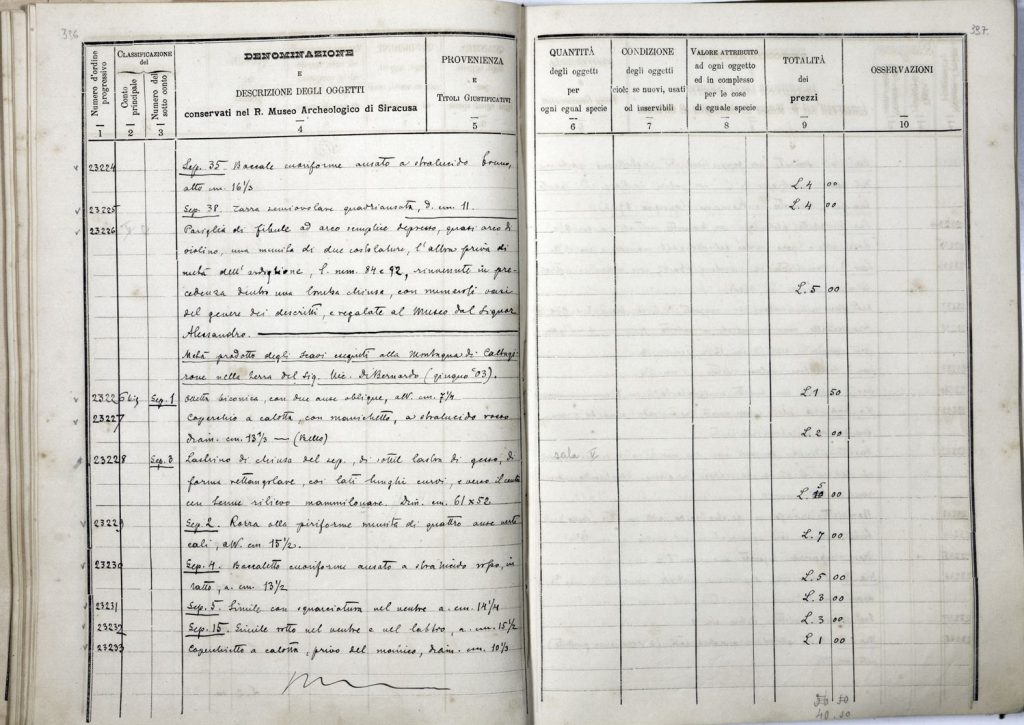 336
Numero d'ordine progressivo
Classificazione del
Conto principale
Numero del sotto conto
DENOMINAZIONE
E
DESCRIZIONE DEGLI OGGETTI
conservati nel R. Museo Archeologico di Siracusa
PROVENIENZA
E
Titoli Giustificativi
1 2 3 4 5
23224 Sep. 35. Boccale cuoriforme ansato a stralucido bruno,
alto cm. 16 1/3
23225 Sep. 38. Tazza semiovolare quadriansata, d. cm. 11.
23226 Pariglia di fibule ad arco semplice depresso, quasi arco di
violino, una munita di due costolature, l'altra priva di
metà dell'ardiglione, l. mm. 84 e 92, rinvenute in pre-
cedenza dentro una tomba chiusa, con numerosi vasi
del genere dei descritti, e regalate al Museo dal Signor
Alessandro.
Metà prodotto degli scavi eseguiti alla Montagna di Caltagi-
rone nella terra del Sig. Vic. Di Bernardo (giugno '03).
23226 bis Sep. 1 Olletta biconica, con due anse oblique, alt. cm. 7 1/4
23227 Coperchio a calotta, con manichetto, a stralucido rosso
diam. cm. 13 1/3 — (Bello)
23228 Sep. 3 Lastrino di chiusa del sep., di sottil lastra di gesso, di
forma rettangolare, coi lati lunghi curvi, e verso il centro
un tenue rilievo mammillonare. Dim. cm. 61 x 52
23229 Sep. 2. Rozza olla piriforme munita di quattro anse verti-
cali, alt. cm 15 1/2.
23230 Sep. 4. Boccaletto cuoriforme ansato a stralucido rosso, in-
tatto, a. cm. 13 1/2
23231 Sep. 5. Simile con squarciatura nel ventre a. cm. 14 1/4
23232 Sep. 15. Simile rotto nel ventre e nel labbro, a. cm. 15 1/2
23233 Coperchietto a calotta, privo del manico, diam. cm. 10 1/3
337
QUANTITÀ
degli oggetti
per
ogni egual specie
CONDIZIONE
degli oggetti
cioè: se nuovi, usati
od inservibili
Valore attribuito
ad ogni oggetto
ed in complesso
per le cose
di eguale specie
TOTALITÀ
dei
prezzi
OSSERVAZIONI
6 7 8 9 10
L. 4 00
L. 4 00
L. 5 00
L. 1 50
L. 2 00
sala V
L. 5 00
L. 7 00
L. 5 00
L. 3 00
L. 3 00
L. 1 00
40.50